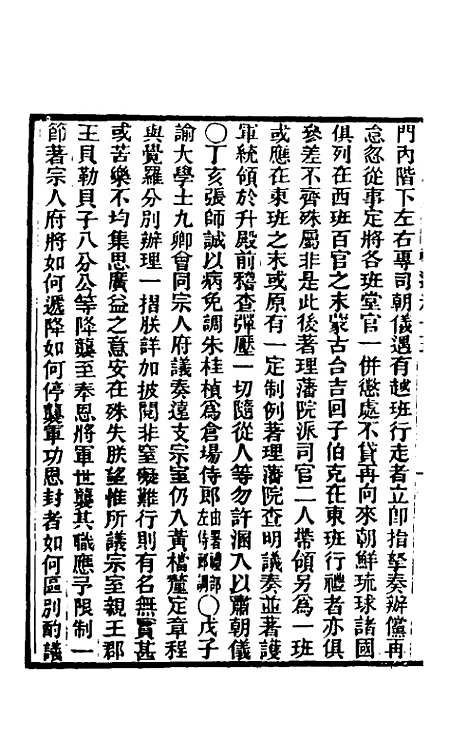 門內階下左右專司朝儀遇有越班行走者立卽指拏奏辦儻再
怠忽從事定將各班堂官一併懲處不貸再向來朝鮮琉球諸國
俱列在西班百官之末蒙古台吉回子伯克在東班行禮者亦俱
參差不齊殊屬非是此後著理藩院派司官二人帶領另為一班
或應在東班之末或原有一定制例著理藩院查明議奏並著護
軍統領於升殿前稽查彈壓一切隨從人等勿許溷入以肅朝儀
〇丁亥張師誠以病免調朱桂楨為倉場侍郎由署禮部左侍郎調〇戊子
諭大學士九卿會同宗人府議奏遠支宗室仍入黃檔釐定章程
與覺羅分別辦理一摺朕詳加披閱非窒礙難行則有名無實甚
或苦樂不均集思廣益之意安在殊失朕望惟所議宗室親王郡
王貝勒貝子八分公等降襲至奉恩將軍世襲其職應予限制一
節著宗人府將如何遞降如何停襲軍功恩封者如何區別酌議